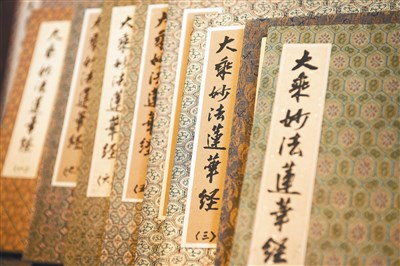 大乘妙法蓮華経
大乘妙法蓮華経
(三)
大乘妙法蓮華経
(五)
大乘妙法蓮華経
(六)
大乘妙法蓮華経
(七)
大乘妙法蓮華経